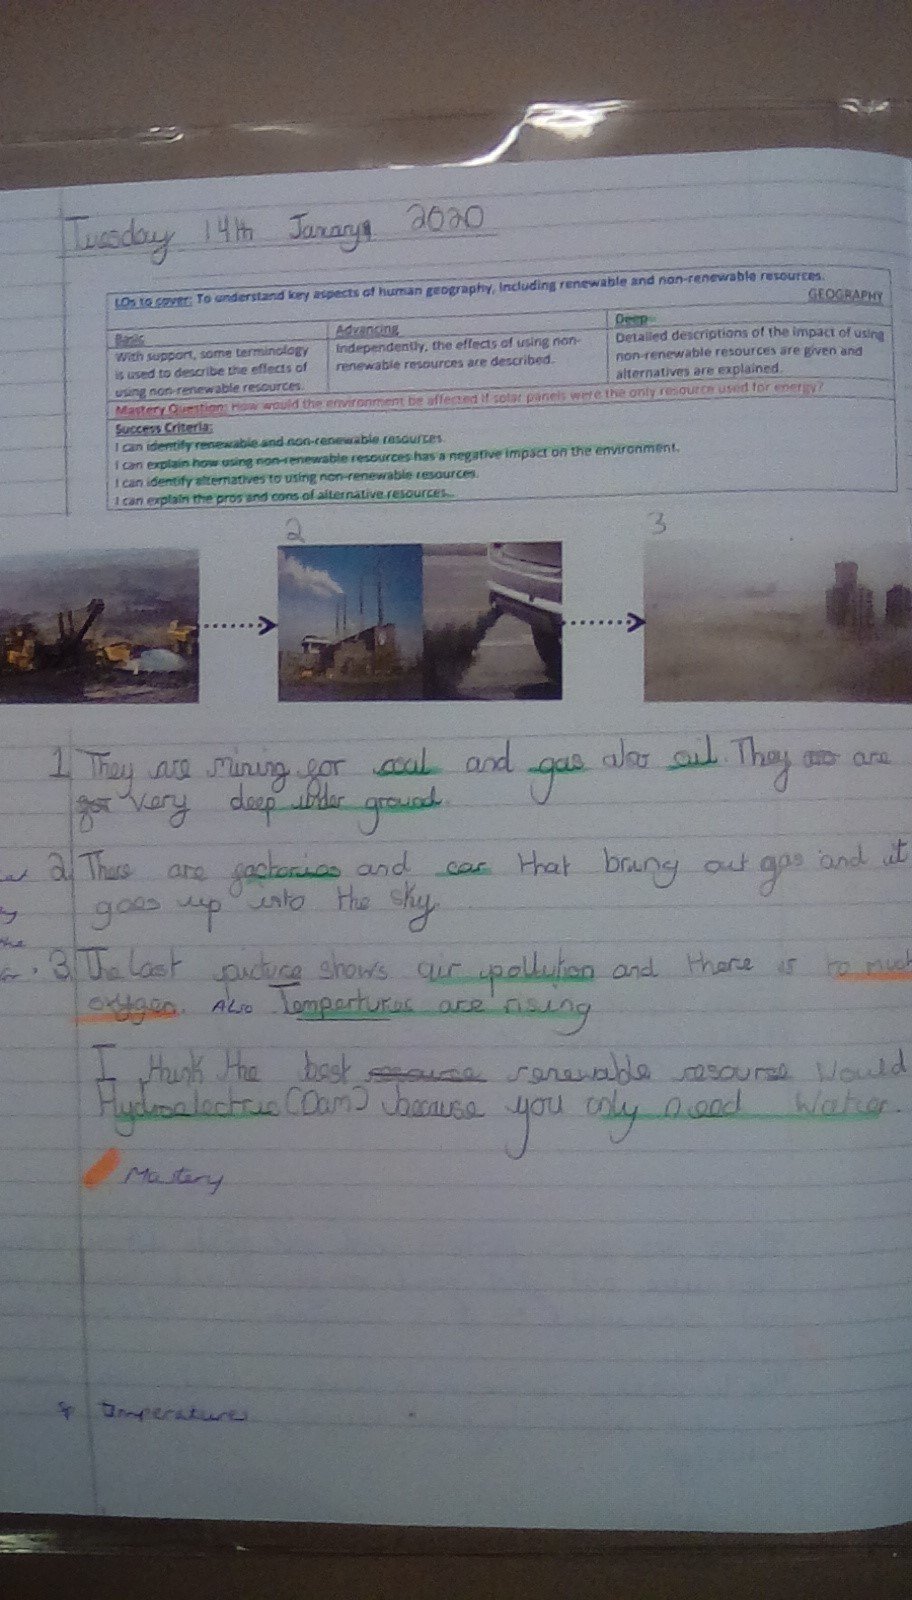 Tuesday 14th Janary 2020
LOs to cover: To understand key aspects of human geography, including renewable and non-renewable resources.
GEOGRAPHY
Basic
With support, some terminology
is used to describe the effects of
using non-renewable resources.
Advancing
Independently, the effects of using non-
renewable resources are described.
Deep
Detailed descriptions of the impact of using
non-renewable resources are given and
alternatives are explained.
Mastery Question: How would the environment be affected if solar panels were the only resource used for energy?
Success Criteria:
I can identify renewable and non-renewable resources.
I can explain how using non-renewable resources has a negative impact on the environment.
I can identify alternatives to using non-renewable resources.
I can explain the pros and cons of alternative resources...
2
3
1 They are mining for coal and gas also oil. They are
very deep under ground.
2 There are factories and car that brung out gas and it
goes up into the sky.
3 The last picture shows air pollution and there is to much
oxygen. Also Tempertures are rising
I think the best renewable resourse would
Hydroelectric (Dam) because you only need water.
Mastery
sp Temperatures